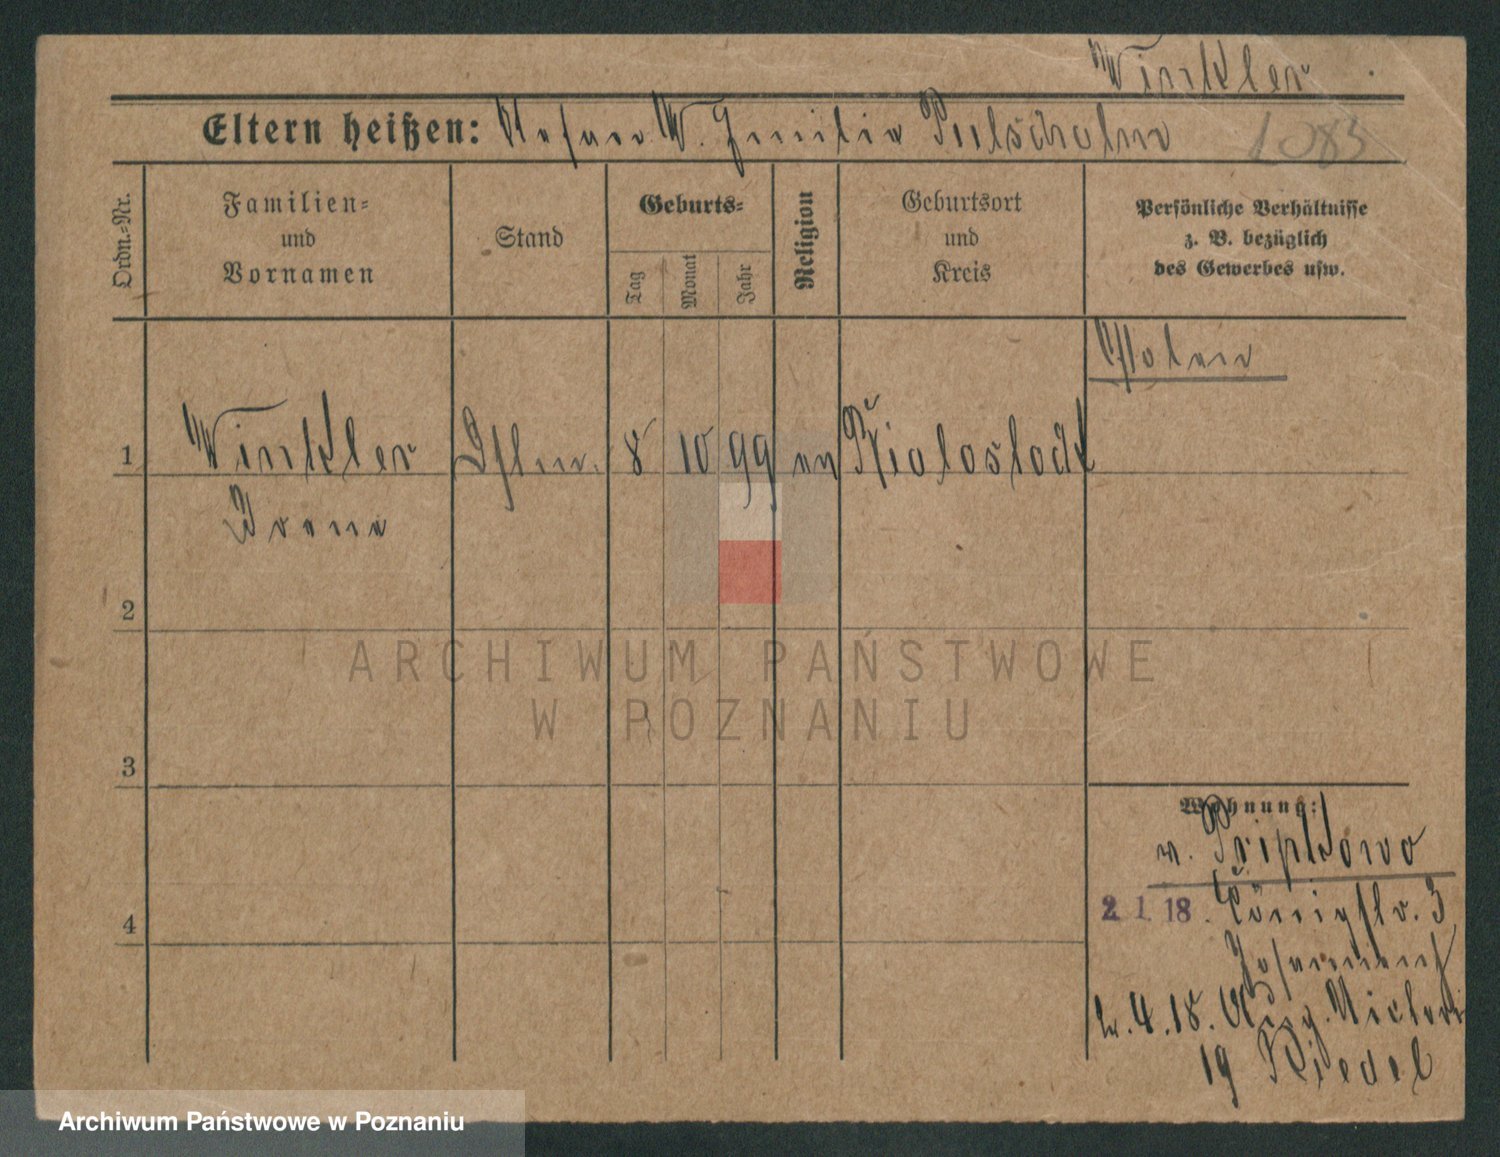 Winkler
Eltern heißen: W. Emilie 1083
Ordn.-Nr.
Familien-
und
Vornamen
Stand
Geburts-
Tag
Monat
Jahr
Religion
Geburtsort
und
Kreis
Persönliche Verhältnisse
z. B. bezüglich
des Gewerbes usw.
Polen
1 Winkler 8 10 99 ev Bialostock
Irene
2
3
4
Wohnung:
v. Pripkowo
2. 1. 18. Königstr. 3
4. 18. Aug. Victori
19 Riedel
ARCHIWUM PAŃSTWOWE
W POZNANIU
Archiwum Państwowe w Poznaniu